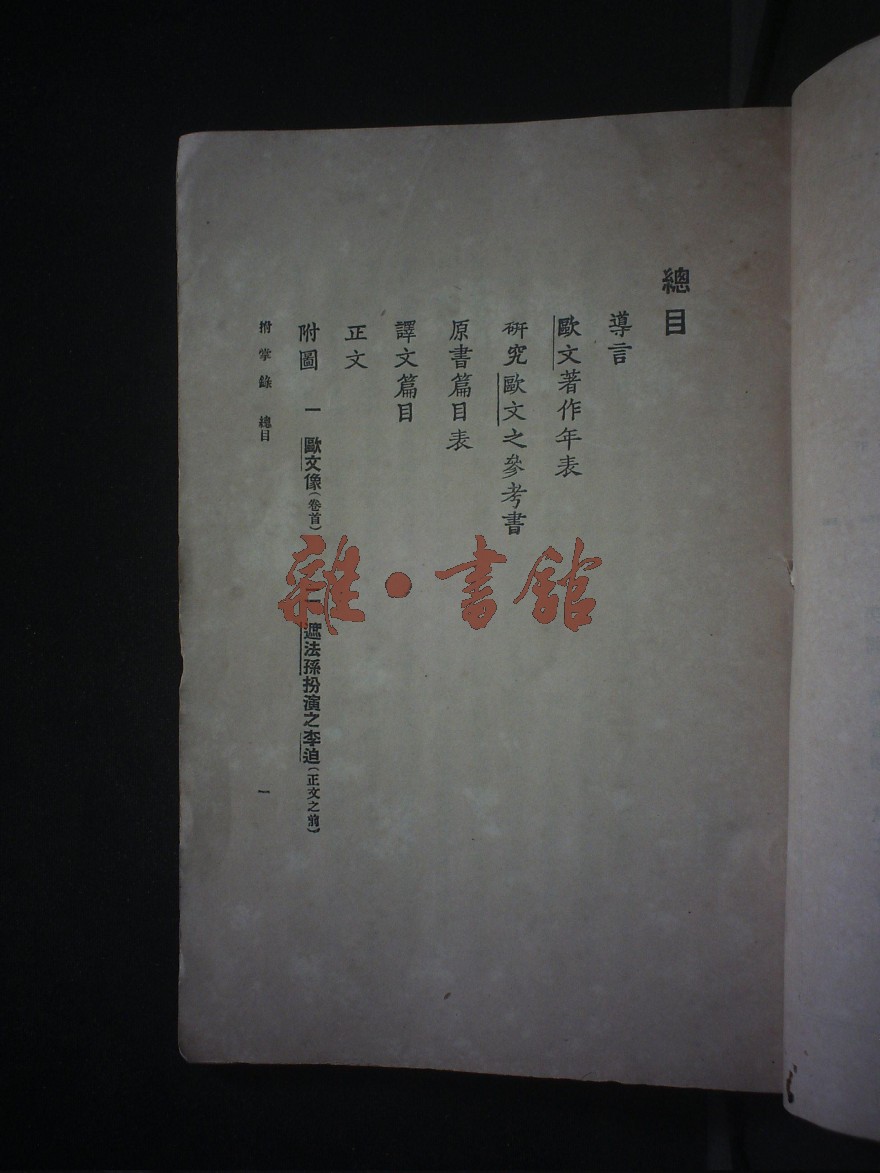 總目
導言
歐文著作年表
研究歐文之參考書
原書篇目表
譯文篇目
正文
附圖 一 歐文像(卷首) 二 遮法孫扮演之李迫(正文之前)
拊掌錄 總目 一
雜·書館